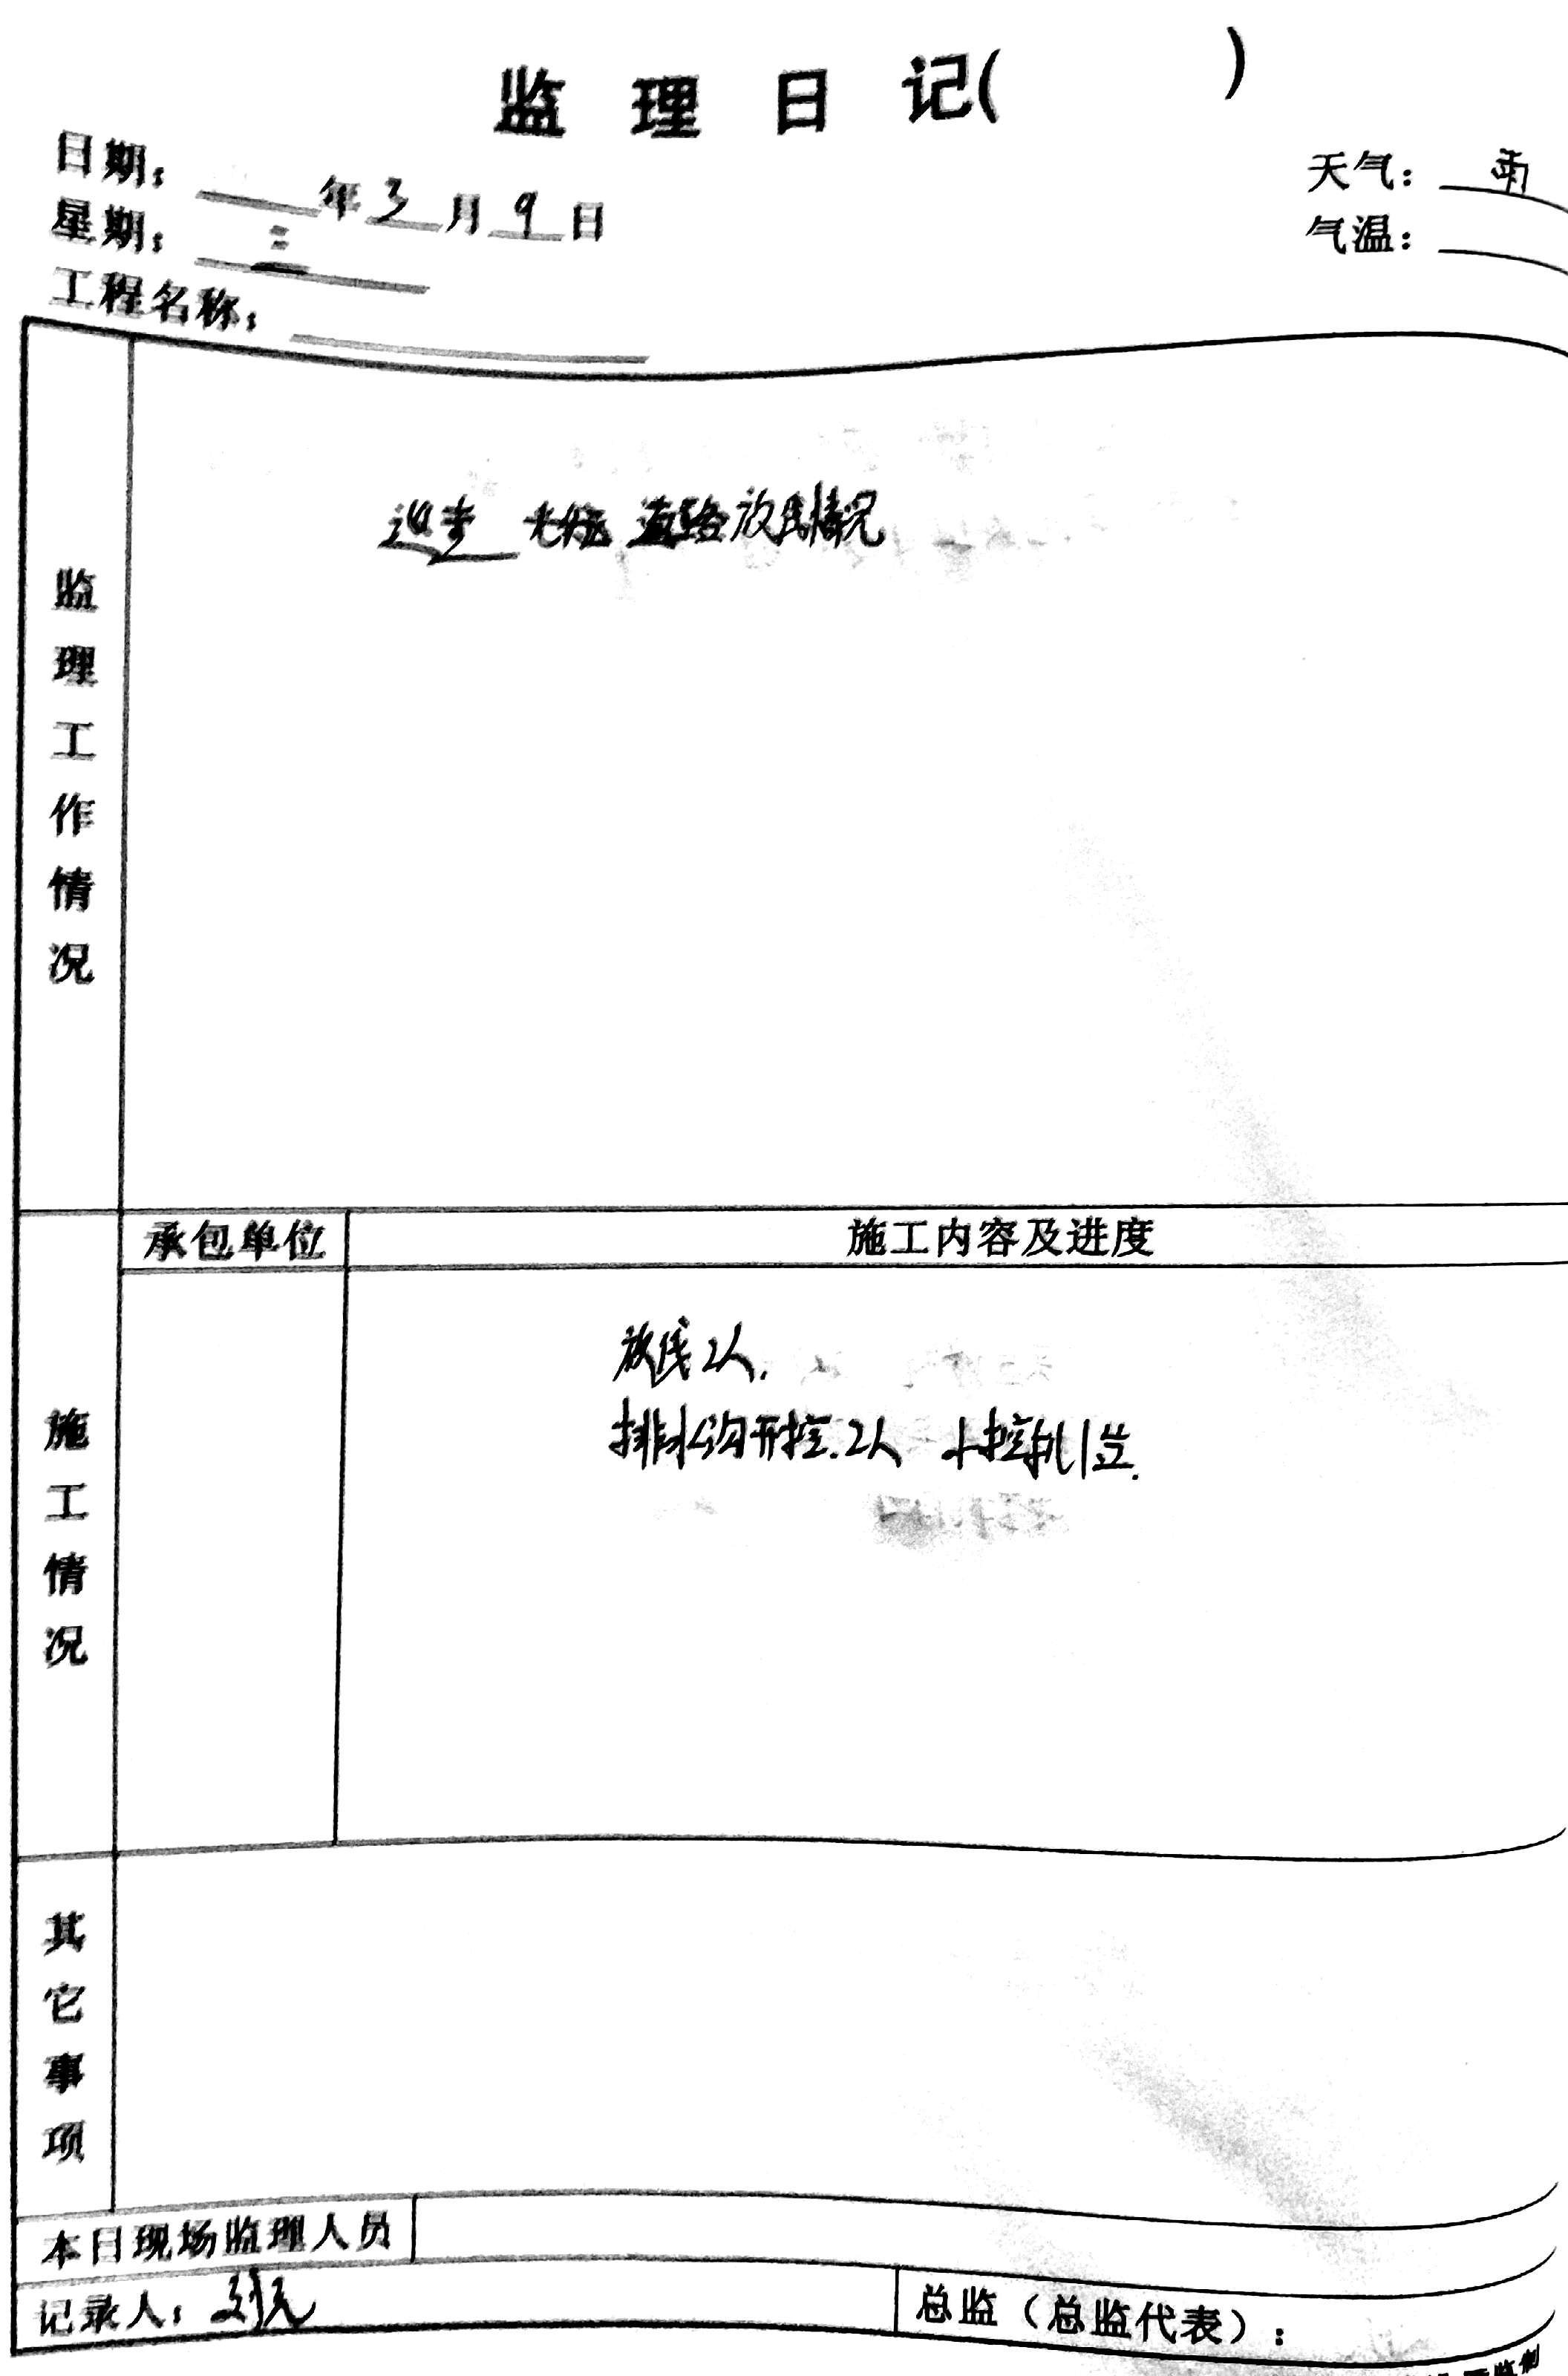 监理日记( )
日期: 年3月9日
天气: 雨
星期: 三
气温:
工程名称:
监理工作情况
道路放线情况
承包单位 施工内容及进度
施工情况
放线2人.
排水沟开挖.2人 小挖机1台.
其它事项
本日现场监理人员
记录人:
总监(总监代表):